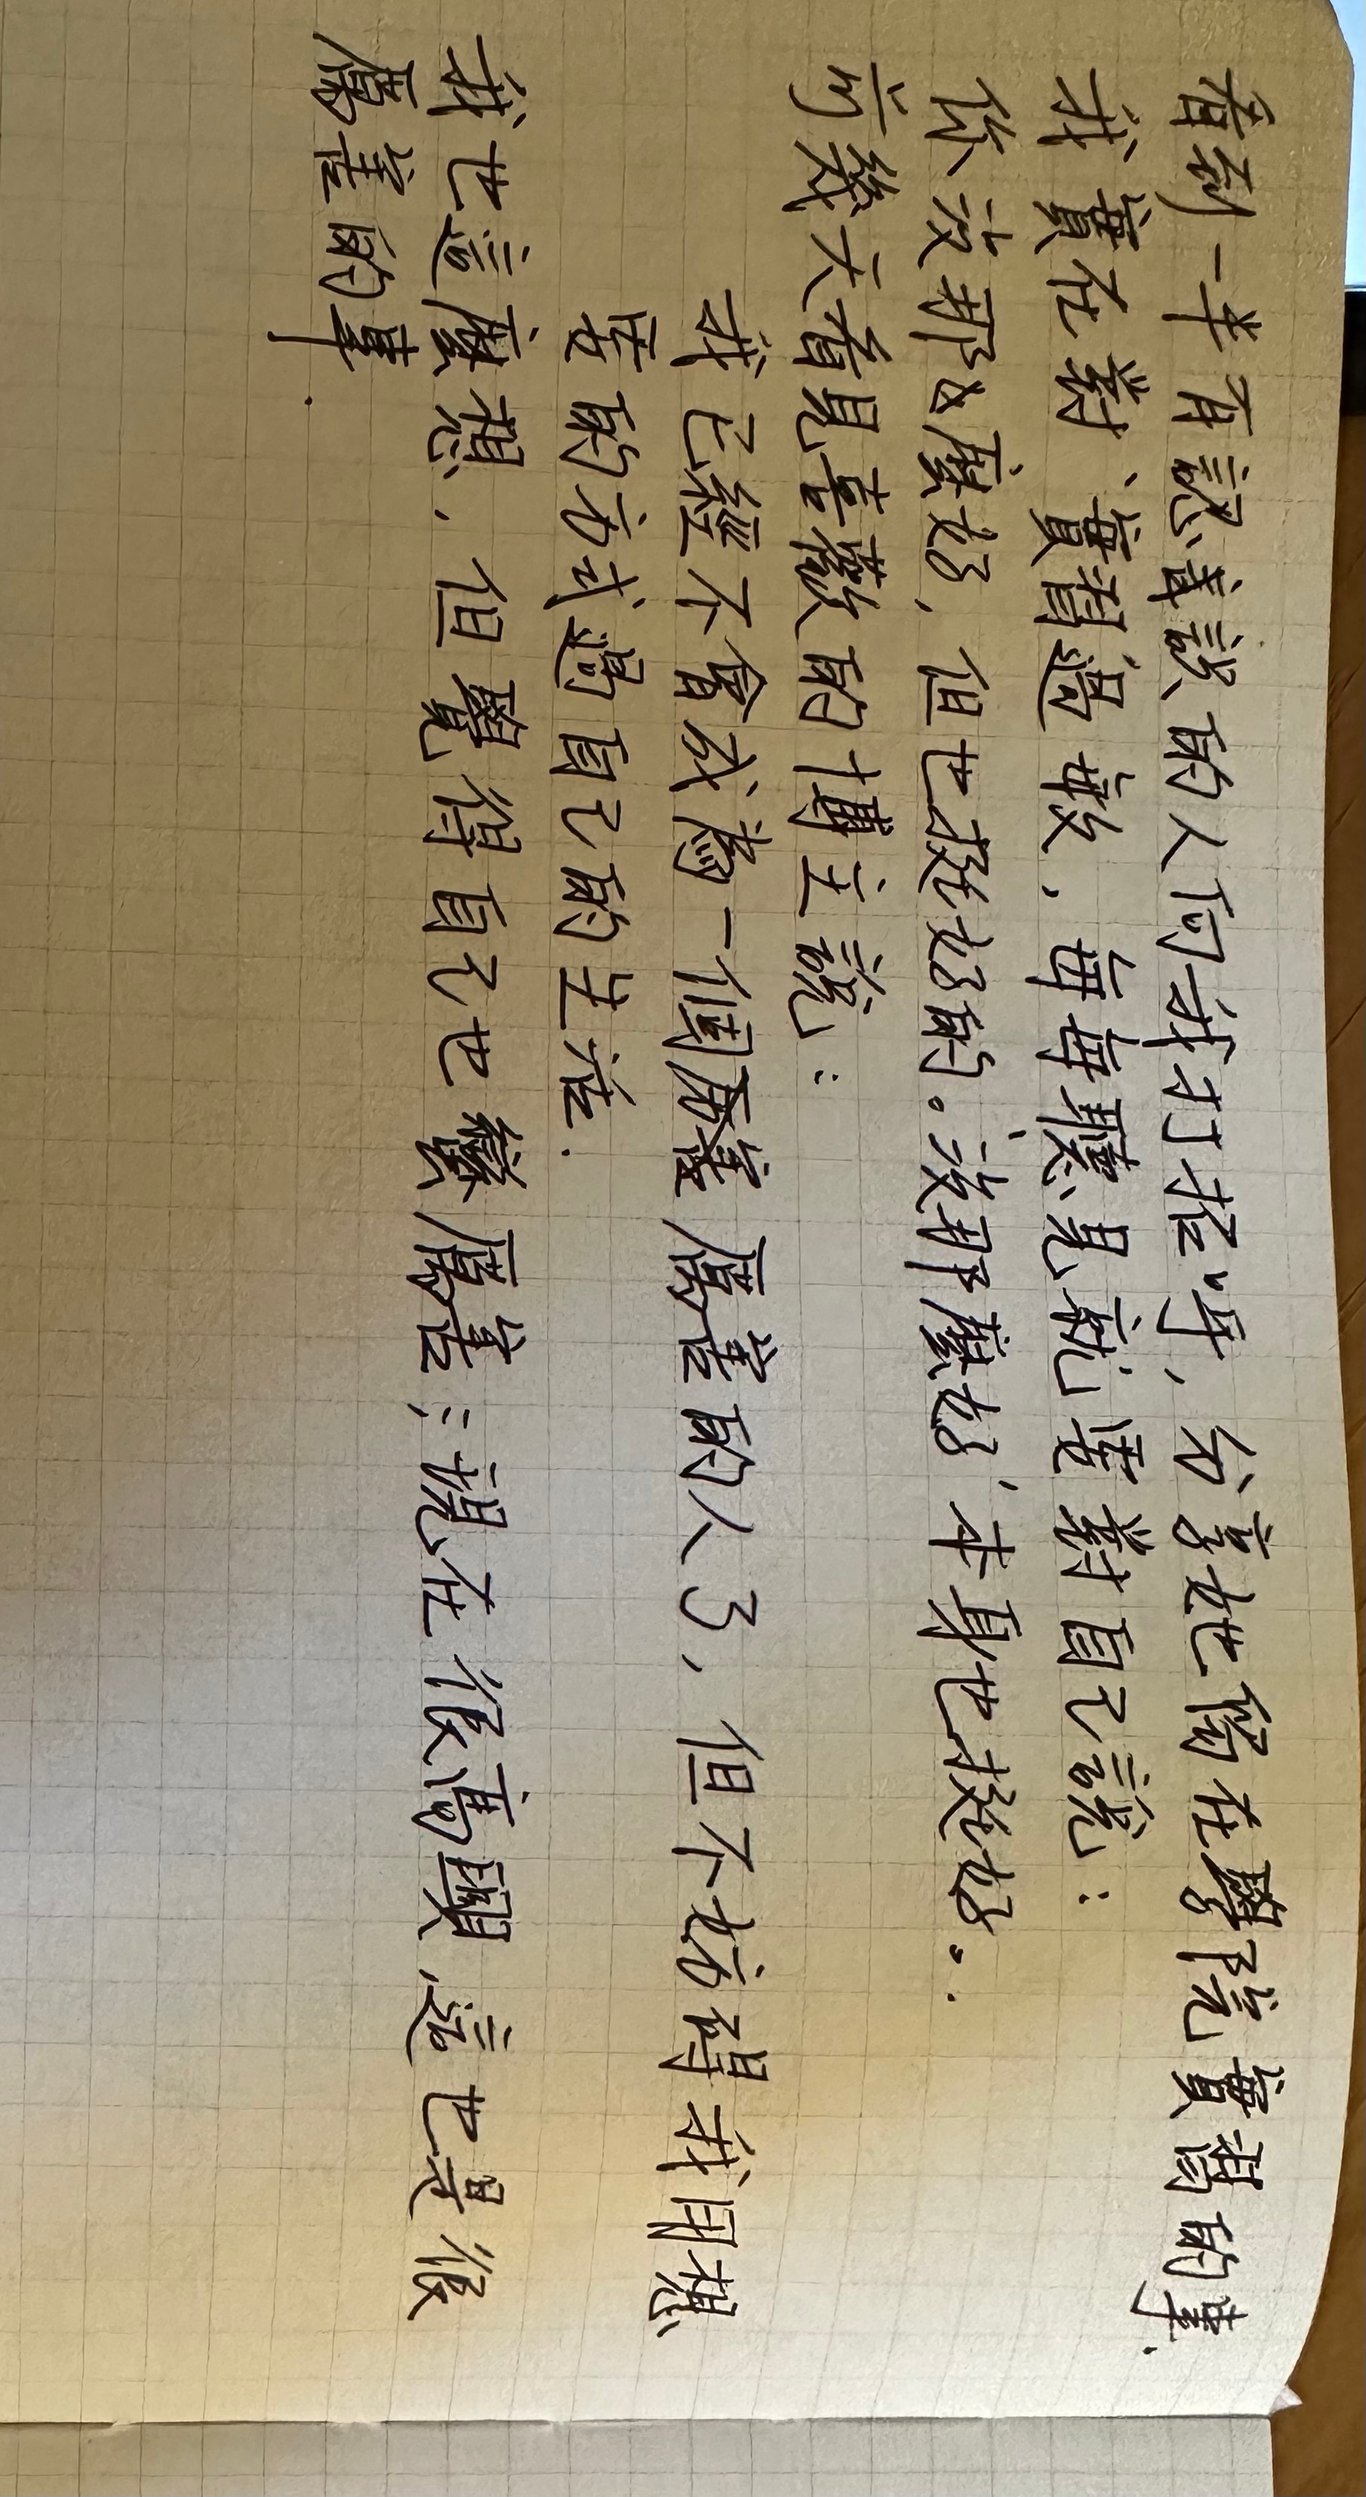 看到一半有認識的人向我打招呼，分享她留在學院實習的事.
我實在對、實習過敏，每每聽見就要對自己說：
你沒那麼好，但也挺好的。'沒那麼好'本身也挺好。.
前幾天看見喜歡的博主說：
我已經不會成為一個厲害的人了，但不妨碍我用想
要的方式過自己的生活.
我也這麼想，但覺得自己也蠻厲害；現在很高興，這也是很
厲害的事.